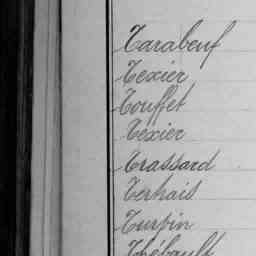 Tarabeuf
Texier
Touffet
Texier
Trassard
Terhais
Turpin
Thébault